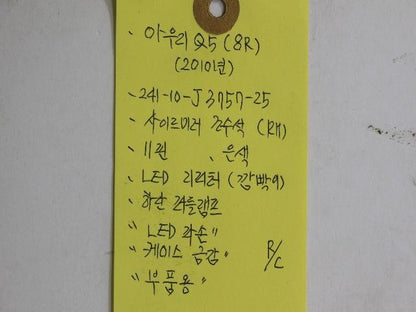 - 아우리 Q5 (8R)
(2010년)
- 241-10-J3757-25
- 사이드미러 조수석 (RH)
- 11핀 、은색
- LED 리피터 (깜빡이)
- 하단 퍼들램프
" LED 파손 "
" 케이스 금감 "
R/C
" 부품용 "